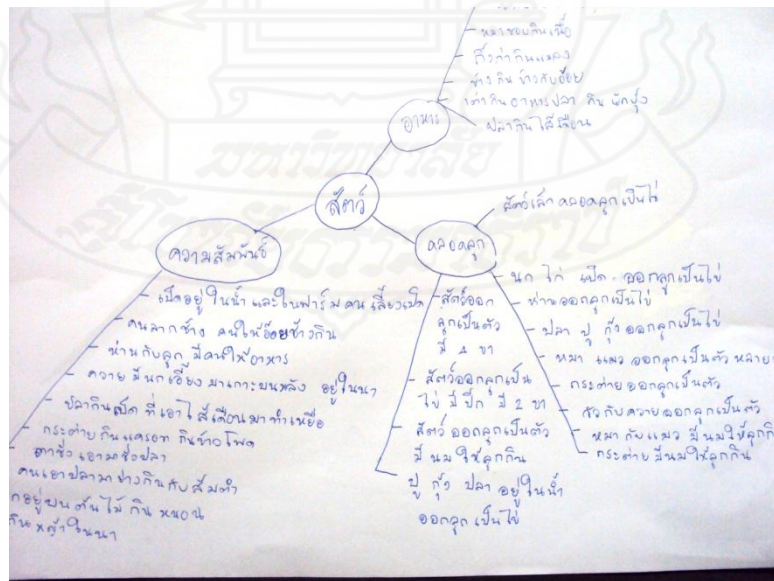 หมาชอบกินเนื้อ
กิ้งก่ากินแมลง
ช้าง กิน ข้าวกับอ้อย
เต่า กิน อาหารปลา กิน ผักบุ้ง
ปลากินไส้เดือน
อาหาร
มหาวิทยาลัย
สุโขทัยธรรมาธิราช
สัตว์
สัตว์เล็กคลอดลูกเป็นไข่
ความสัมพันธ์
คลอดลูก
เป็ดอยู่ในน้ำ และในฟาร์ม คนเลี้ยงเป็ด
คนลากช้าง คนให้อ้อยช้างกิน
ห่านกับลูก มีคนให้อาหาร
ควาย มีนกเอี้ยง มาเกาะบนหลัง อยู่ในนา
ปลากินเบ็ด ที่เอาไส้เดือนมาทำเหยื่อ
กระต่ายกินแครอท กินข้าวโพด
ตาชั่ง เอามาชั่งปลา
คนเอาปลามาย่างกินกับส้มตำ
อยู่บนต้นไม้ กิน หนอน
กินหญ้าในนา
สัตว์ออก
ลูกเป็นตัว
มี 4 ขา
สัตว์ออกลูกเป็น
ไข่ มี ปีก มี 2 ขา
สัตว์ออกลูกเป็นตัว
มีนมให้ลูกกิน
ปู กุ้ง ปลา อยู่ในน้ำ
ออกลูกเป็นไข่
นก ไก่ เป็ด ออกลูกเป็นไข่
ห่านออกลูกเป็นไข่
ปลา ปู กุ้ง ออกลูกเป็นไข่
หมา แมว ออกลูกเป็นตัว
กระต่ายออกลูกเป็นตัว
วัวกับควายออกลูกเป็นตัว
หมากับแมว มีนมให้ลูกกิน
กระต่ายมีนมให้ลูกกิน